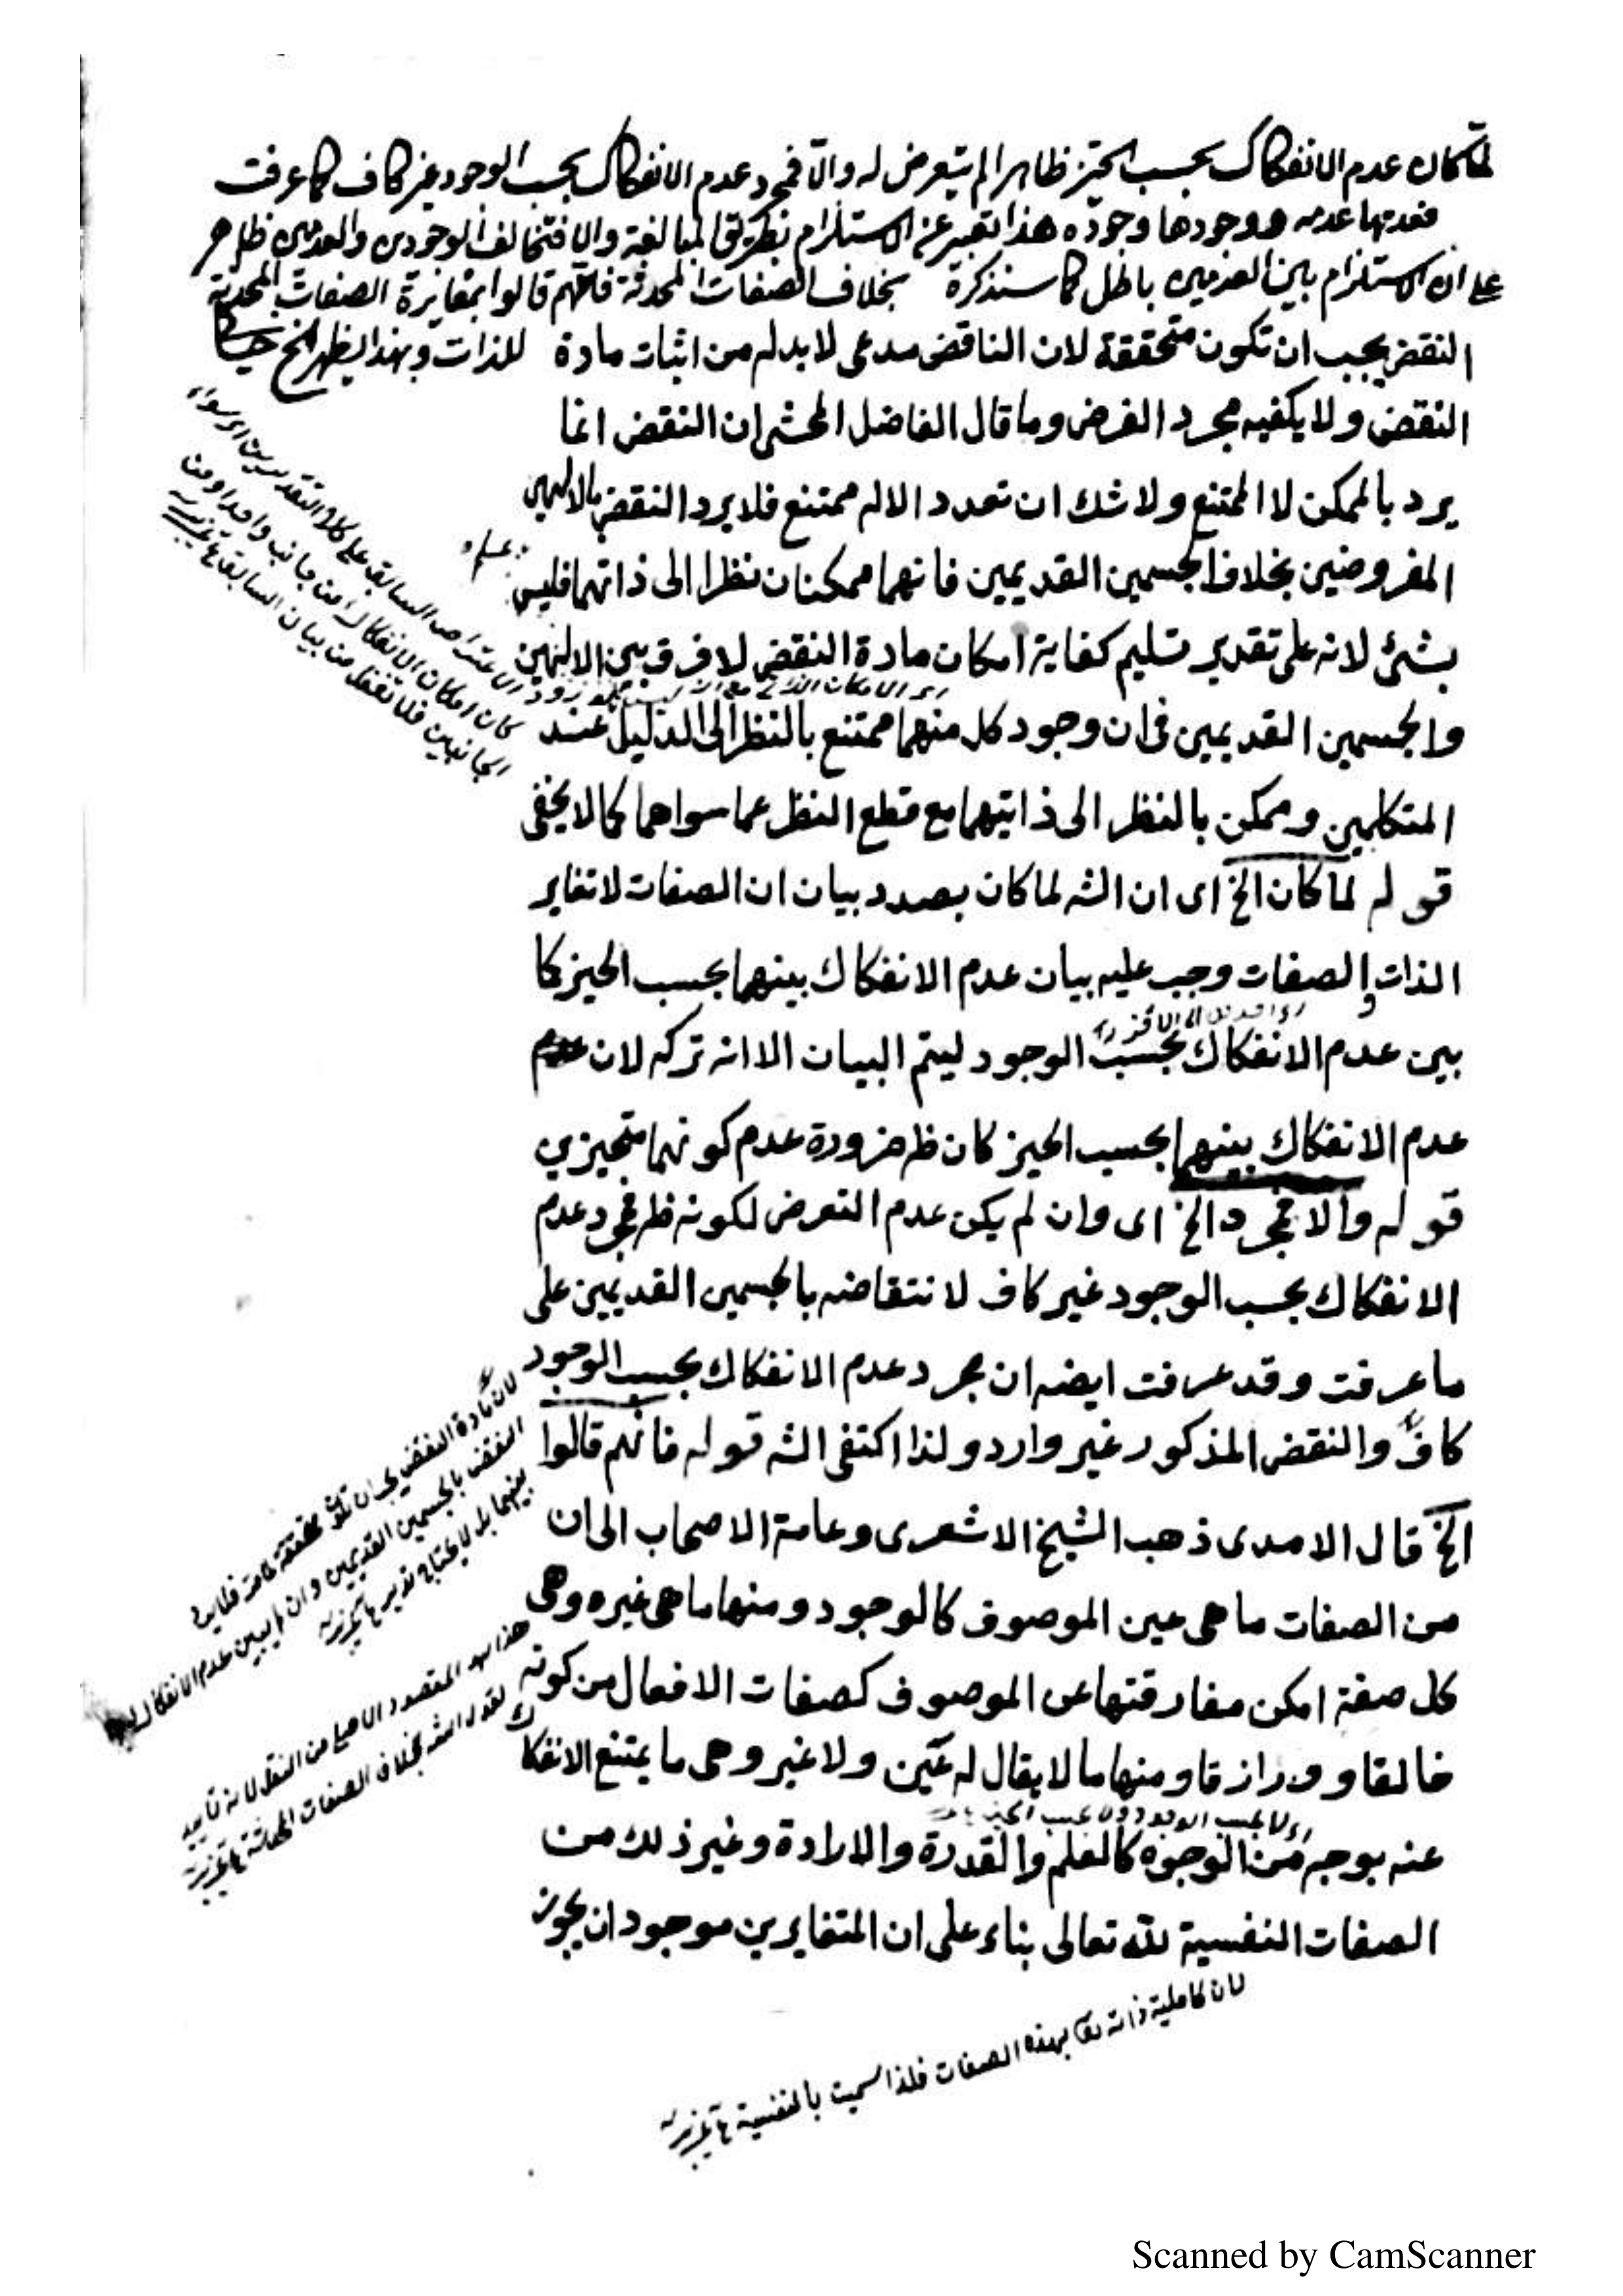 لما كان عدم الانفكاك بحسب الحيز ظاهرا لم يتعرض له والا فمجرد عدم الانفكاك بحسب الوجود غير كاف كما عرفت
فعدمها عدمه ووجودها وجوده هذا تعبير عن الاستلزام بطريق المبالغة والا فتخالف الوجودين والعدمين ظاهر
على ان الاستلزام بين العدمين باطل كما سنذكره بخلاف الصفات المحدثة فانهم قالوا بمغايرة الصفات المحدثة
النقض يجب ان تكون متحققة لان الناقض مدعى لا بد له من اثبات مادة للذات وبهذا يظهر الخ
النقض ولا يكفيه مجرد الفرض وما قال الفاضل المحشى ان النقض انما
يرد بالممكن لا الممتنع ولا شك ان تعدد الاله ممتنع فلا يرد النقض بالالهين
المفروضين بخلاف الجسمين القديمين فانهما ممكنان نظرا الى ذاتهما فليس
بشئ لانه على تقدير تسليم كفاية امكان مادة النقض لا فرق بين الالهين
والجسمين القديمين فى ان وجود كل منهما ممتنع بالنظر الى الدليل عند
المتكلمين وممكن بالنظر الى ذاتيهما مع قطع النظر عما سواهما كما لا يخفى
قوله لما كان الخ اى ان الشه لما كان بصدد بيان ان الصفات لا تغاير
الذات والصفات وجب عليه بيان عدم الانفكاك بينهما بحسب الحيز كما
بين عدم الانفكاك بحسب الوجود ليتم البيان الا انه تركه لان عدم
عدم الانفكاك بينهما بحسب الحيز كان ظ ضرورة عدم كونهما متحيزين
قوله والا فمجرد الخ اى وان لم يكن عدم التعرض لكونه ظ فمجرد عدم
الانفكاك بحسب الوجود غير كاف لانتقاضه بالجسمين القديمين على
ما عرفت وقد عرفت ايضه ان مجرد عدم الانفكاك بحسب الوجود
كاف والنقض المذكور غير وارد ولذا اكتفى الشه قوله فانهم قالوا
الخ قال الامدى ذهب الشيخ الاشعرى وعامة الاصحاب الى ان
من الصفات ما هى عين الموصوف كالوجود ومنها ما هى غيره وهى
كل صفة امكن مفارقتها عن الموصوف كصفات الافعال من كونه
خالقا و ورازقا ومنها ما لا يقال له عين ولا غير وهى ما يمتنع الانفكاك
عنه بوجه من الوجوه كالعلم والقدرة والارادة وغير ذلك من
الصفات النفسية لله تعالى بناء على ان المتغايرين موجودان يجوز
كان امكان الانفكاك من جانب واحد او من
الجانبين فلا تغفل من بيان السابق
لان مادة النقض يجب ان تكون متحققة فلا يرد
النقض بالجسمين القديمين وان لم يبين عدم الانفكاك
هذا هو المقصود الاصلى من النقل لانه تأييد
لقول الشه بخلاف الصفات المحدثة
لان كاملية ذاته تعا بهذه الصفات فلذا سميت بالنفسية
Scanned by CamScanner